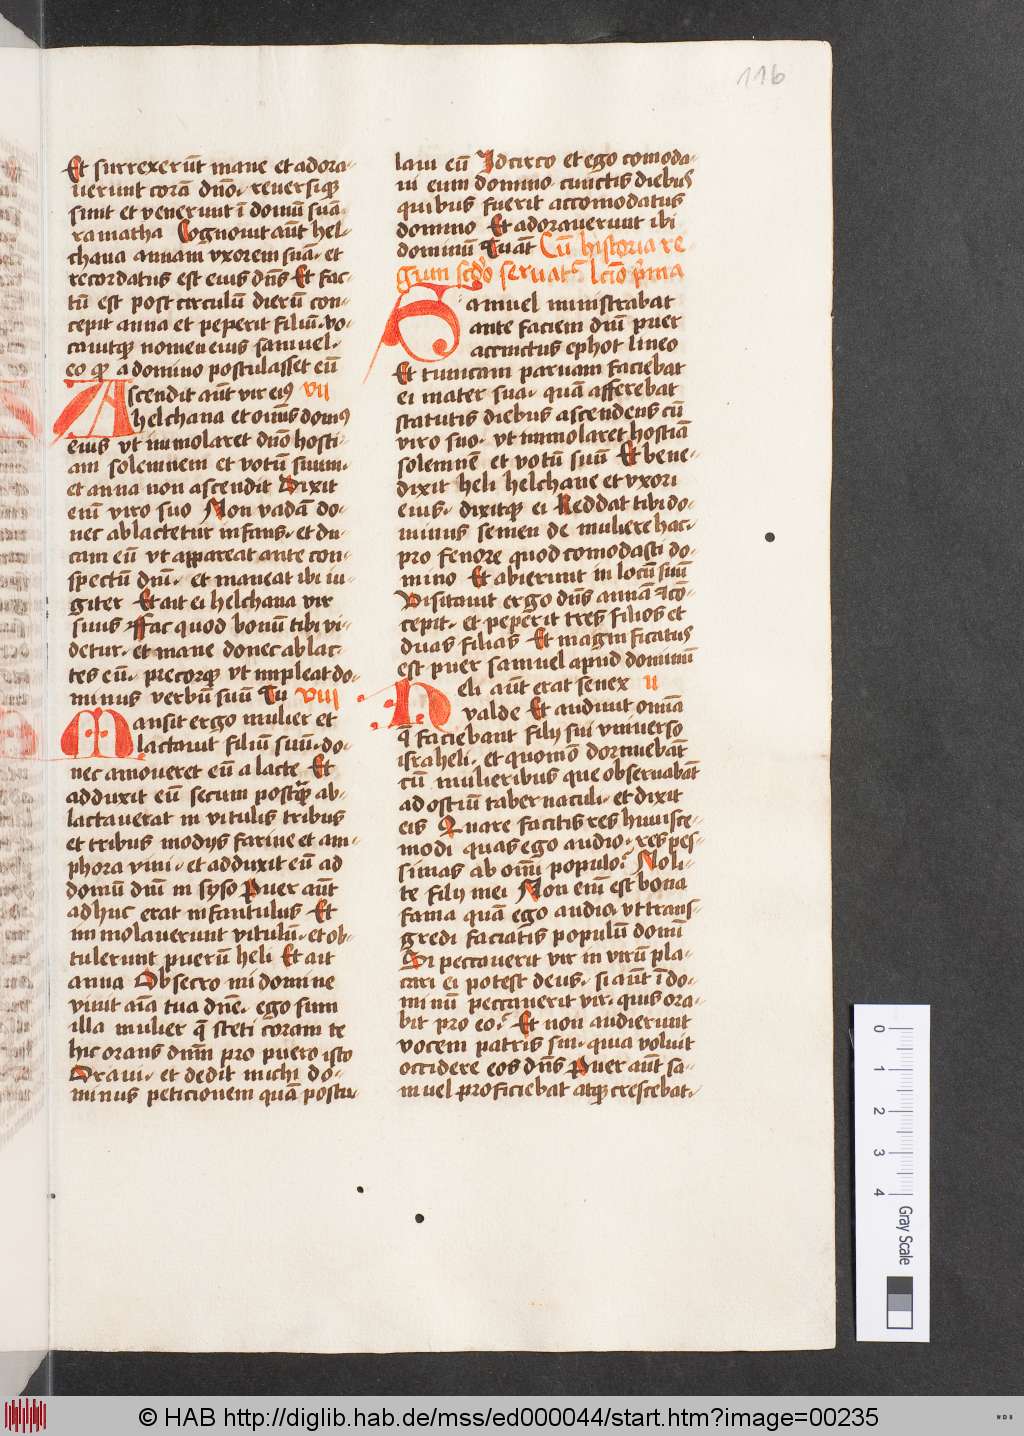 116
Et surrexerūt mane et adora-
uerunt corā dn̄o. reuersiqꝫ
sunt et venerunt ī domū suā
ramatha Cognouit aūt hel-
chana annam vxorem suā. et
recordatus est eius dn̄s Et fac-
tū est post circulū dierū con-
cepit anna et peperit filiū. vo-
cauitqꝫ nomen eius samuel.
eo qꝫ a domino postulasset eū
Ascendit aūt vir eiꝰ vii
helchana et om̄is domꝰ
eius vt immolaret dn̄o hosti-
am solemnem et votū suum.
et anna non ascendit Dixit
eni̅ viro suo Non vadā do-
nec ablactetur infans. et du-
cam eū vt appareat ante con-
spectū dn̄i. et maneat ibi iu-
giter Et ait ei helchana vir
suus Fac quod bonū tibi vi-
detur. et mane donec ablac-
tes eū. precorqꝫ vt impleat do-
minus verbū suū Tu viii
Mansit ergo mulier et
lactauit filiū suū. do-
nec amoueret eū a lacte Et
adduxit eū secum postqꝫ ab-
lactauerat in vitulis tribus
et tribus modys farine et am-
phora vini. et adduxit eū ad
domū dn̄i in sylo Puer aūt
adhuc erat infantulus Et
immolauerunt vitulū. et ob-
tulerunt puerū heli Et ait
anna Obsecro mi domine
viuit aīa tua dn̄e. ego sum
illa mulier q̄ steti coram te
hic orans dn̄m pro puero isto
Oraui. et dedit michi do-
minus peticionem quā postu-
laui eū Idcirco et ego comoda-
ui eum domino cunctis diebus
quibus fuerit accomodatus
domino Et adorauerunt ibi
dominū Tu aūt Cū historia re-
gum scd̓o seruatᷣ lcīo p̓ma
Samuel ministrabat
ante faciem dn̄i puer
accinctus ephot lineo
Et tunicam paruam faciebat
ei mater sua. quā afferebat
statutis diebus ascendens cū
viro suo. vt immolaret hostiā
solemnē et votū suū Et bene-
dixit heli helchane et vxori
eius. dixitqꝫ ei Reddat tibi do-
minus semen de muliere hac.
pro fenore quod comodasti do-
mino Et abierunt in locū suū
Visitauit ergo dn̄s annā et cō-
cepit. et peperit tres filios et
duas filias Et magnificatus
est puer samuel apud dominū
Heli aūt erat senex ii
valde Et audiuit om̄ia
q̄ faciebant filij sui vniuerso
israheli. et quomō dormiebāt
cū mulieribus que obseruabāt
ad ostiū tabernaculi. et dixit
eis Quare facitis res huiusce-
modi quas ego audio. res pes-
simas ab om̄i populo? Noli-
te filij mei Non eni̅ est bona
fama quā ego audio. vt trans-
gredi faciatis populū domī
Si peccauerit vir in virū pla-
cari ei potest deus. si aūt ī do-
minū peccauerit vir. quis ora-
bit pro eo? Et non audierunt
vocem patris sui. quia voluit
occidere eos dn̄s Puer aūt sa-
muel proficiebat atqꝫ crescebat.
0 1 2 3 4
Gray Scale
© HAB http://diglib.hab.de/mss/ed000044/start.htm?image=00235